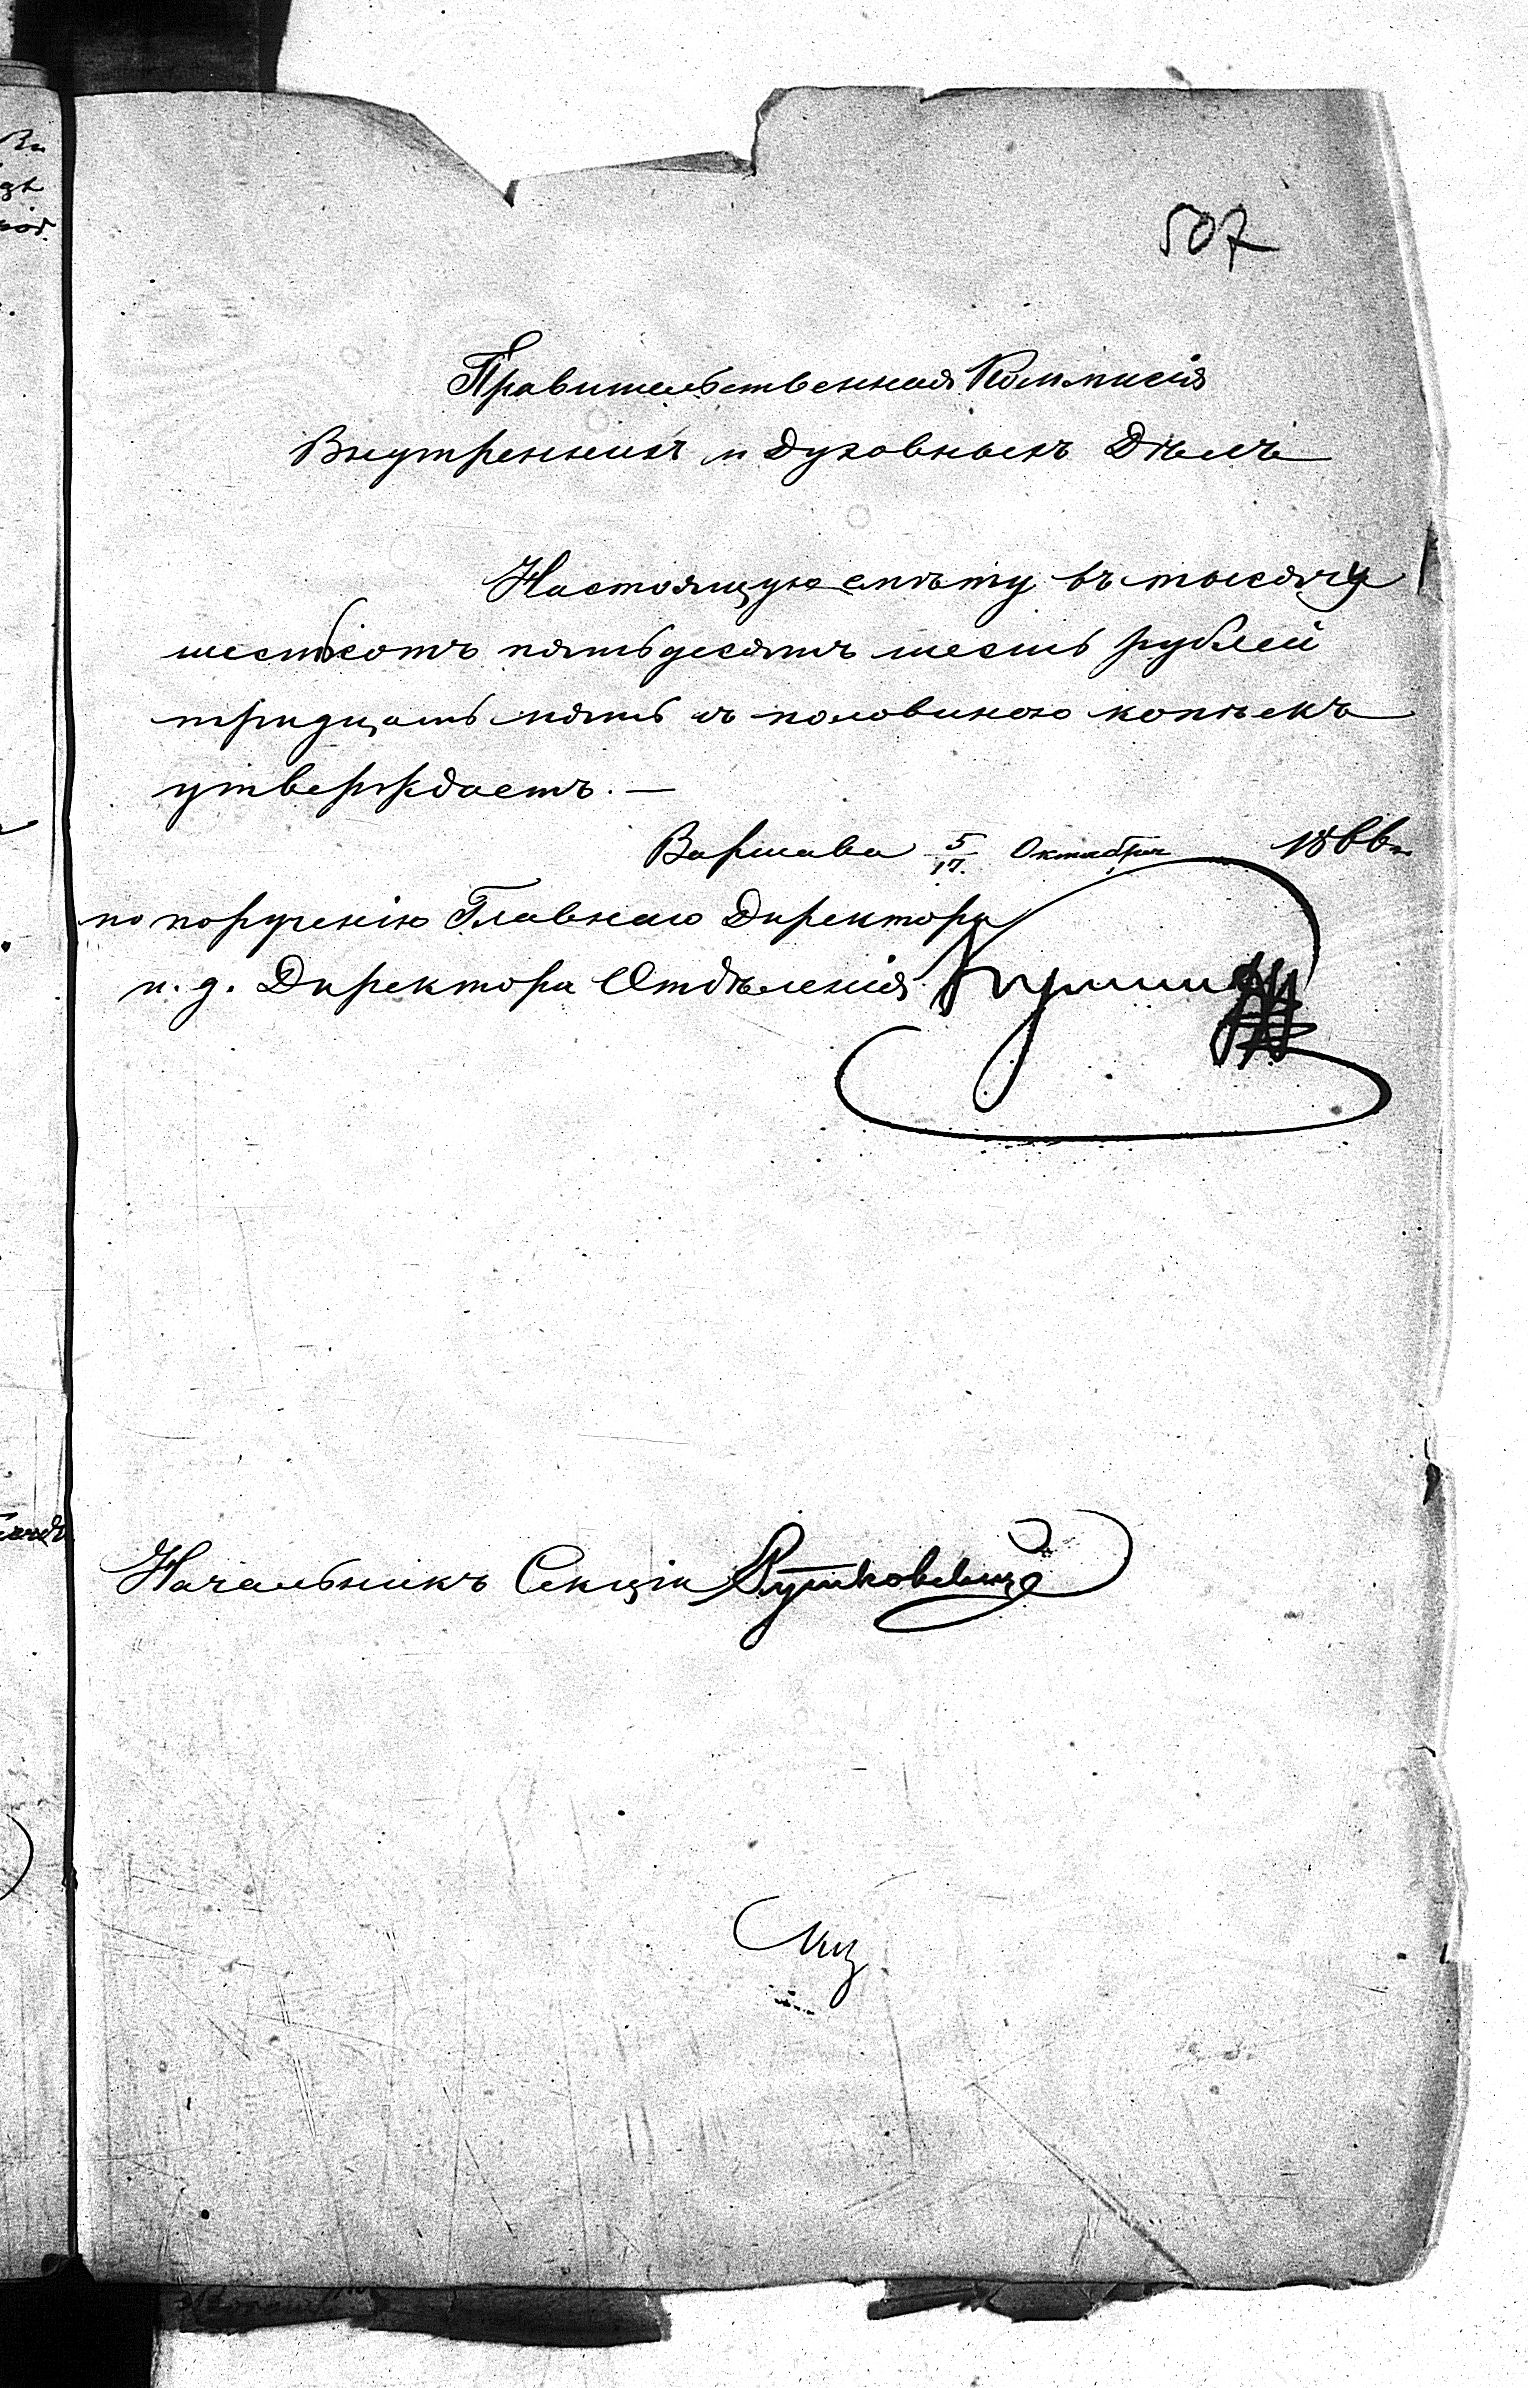 507
Правительственная Коммисія
Внутреннихъ и Духовныхъ Дѣлъ
Настоящую смѣту въ тысячу
шестьсотъ пятьдесятъ шесть рублей
тридцать пять съ половиною копѣекъ
утверждаетъ. —
Варшава 5/17. Октября 1866 г.
по порученію Главнаго Директора
и. д. Директора Отдѣленія
Начальникъ Секціи